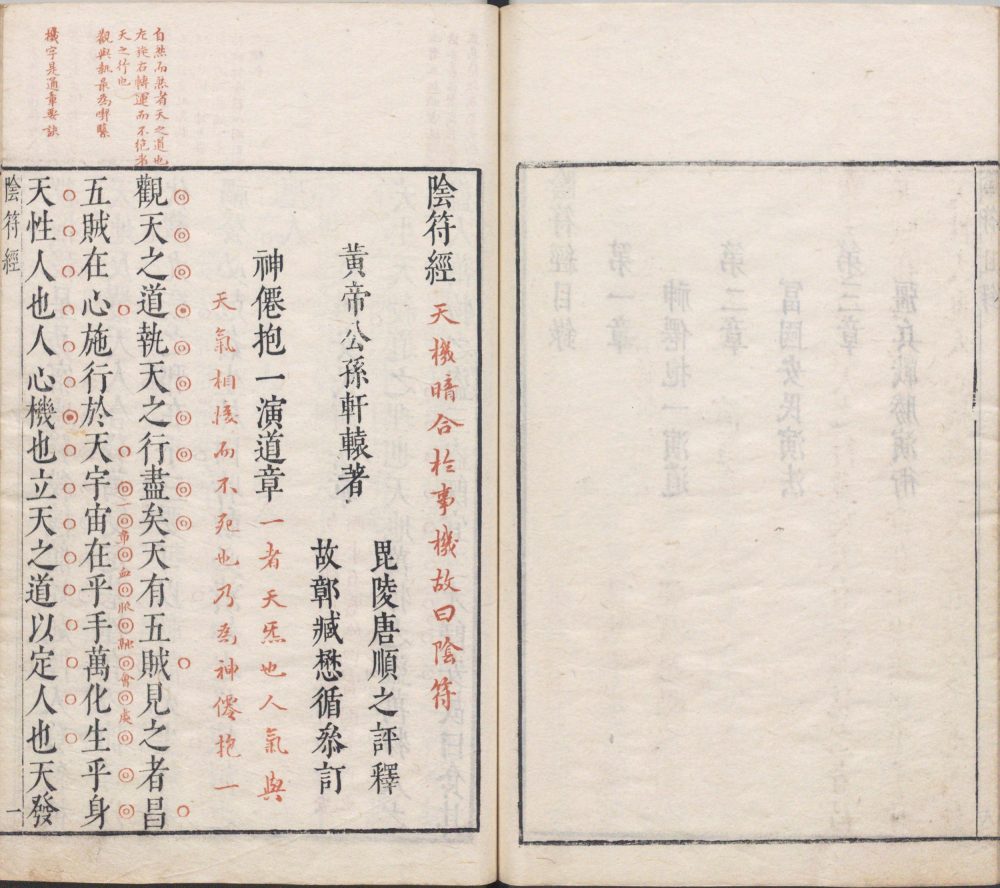 自然而然者天之道也
左旋右轉運而不絶者
天之行也
觀與執最為喫緊
機字是通章要訣
陰符經 天機暗合於事機故曰陰符
毘陵唐順之評釋
黃帝公孫軒轅著
故鄣臧懋循叅訂
神僊抱一演道章 一者天炁也人氣與
天氣相接而不死也乃為神僊抱一
觀天之道執天之行盡矣天有五賊見之者昌
一章血脉融會處
五賊在心施行於天宇宙在乎手萬化生乎身
天性人也人心機也立天之道以定人也天發
陰符經 一